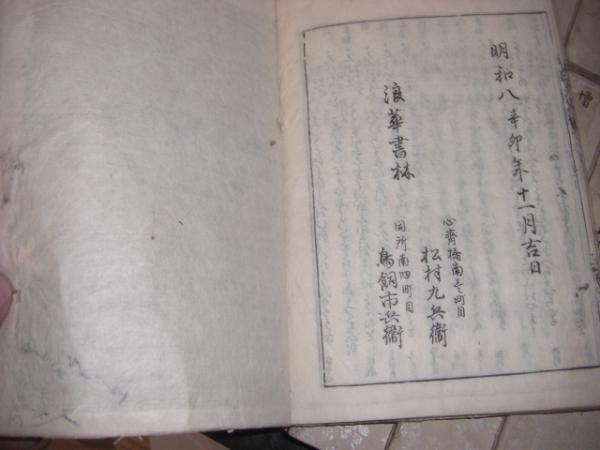 明和八辛卯年十一月吉日
浪華書林
心齋橋南壱町目
松村九兵衞
同所南四町目
鳥飼市兵衞